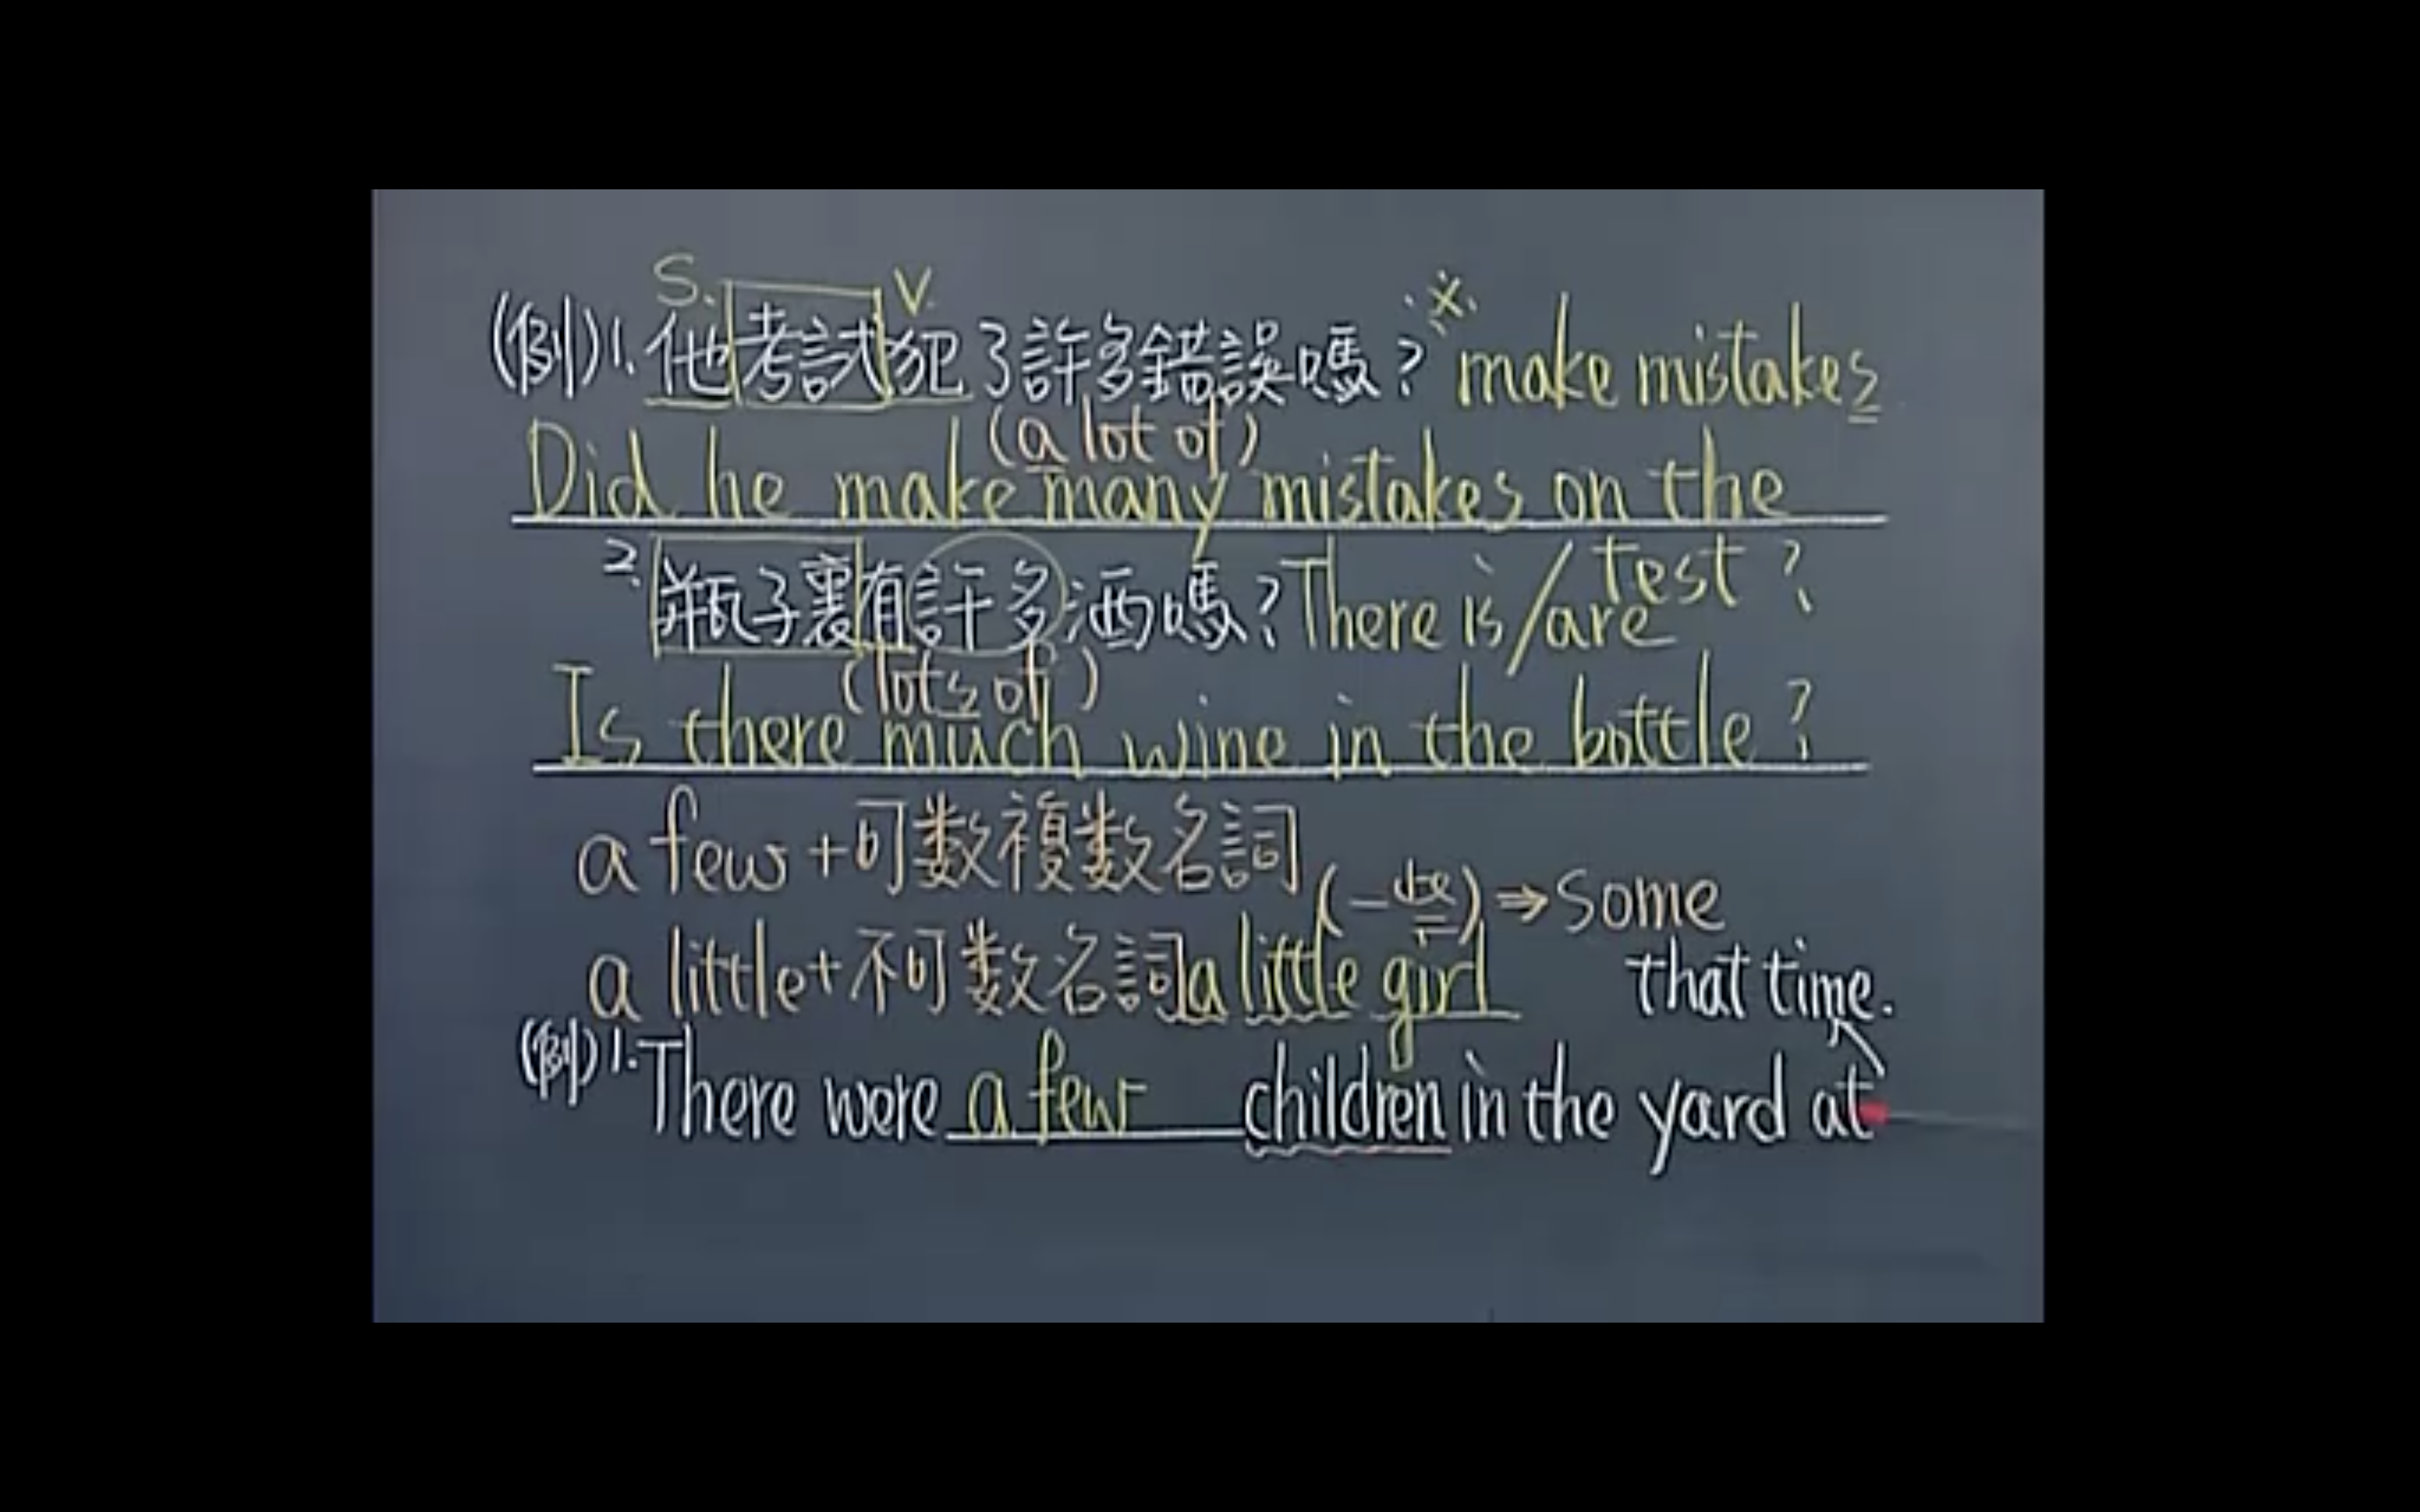 S. V.
(例)1. 他考試犯了許多錯誤嗎? ※ make mistakes
(a lot of)
Did he make many mistakes on the
test?
2. 瓶子裏有許多酒嗎? There is/are
(lots of)
Is there much wine in the bottle?
a few + 可数複数名詞
(一些) ⇒ some
a little + 不可数名詞 a little girl
that time.
(例) 1. There were a few children in the yard at